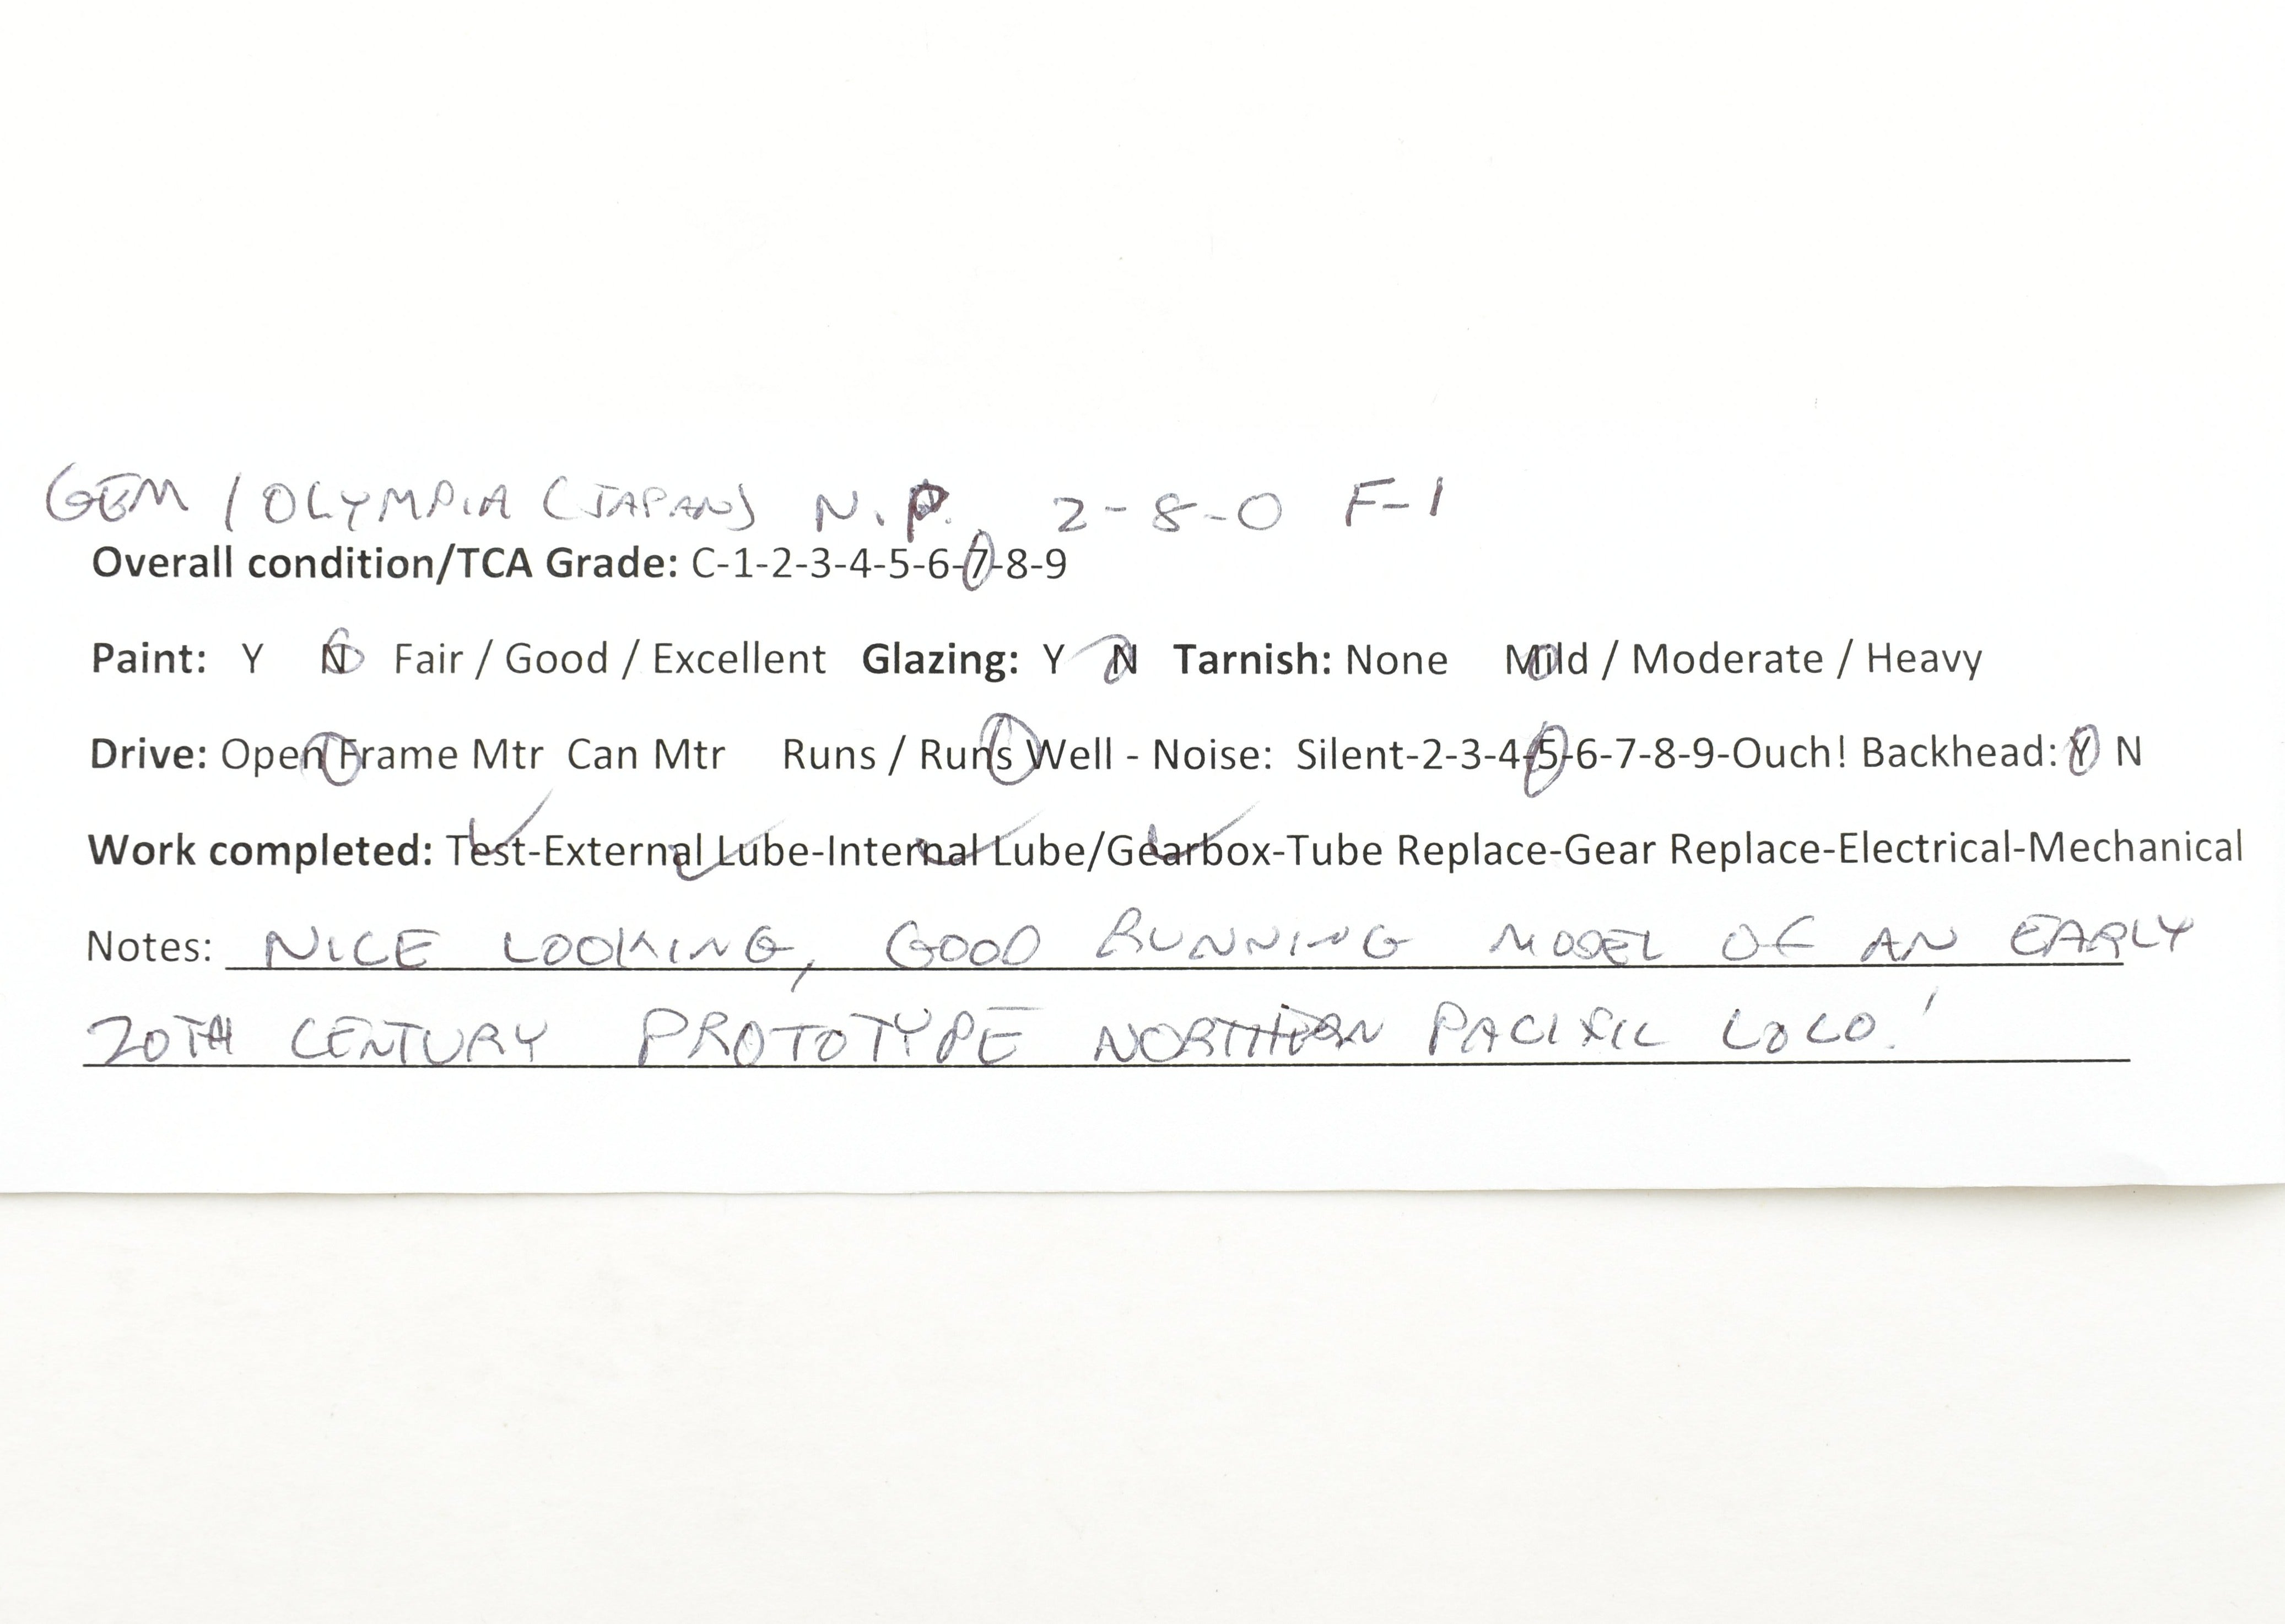 GEM / OLYMPIA (JAPAN) N.P. 2-8-0 F-1
Overall condition/TCA Grade: C-1-2-3-4-5-6-7-8-9
Paint: Y N Fair / Good / Excellent Glazing: Y N Tarnish: None Mild / Moderate / Heavy
Drive: Open Frame Mtr Can Mtr Runs / Runs Well - Noise: Silent-2-3-4-5-6-7-8-9-Ouch! Backhead: Y N
Work completed: Test-External Lube-Internal Lube/Gearbox-Tube Replace-Gear Replace-Electrical-Mechanical
Notes: NICE LOOKING, GOOD RUNNING MODEL OF AN EARLY
20TH CENTURY PROTOTYPE NORTHERN PACIFIC LOCO!